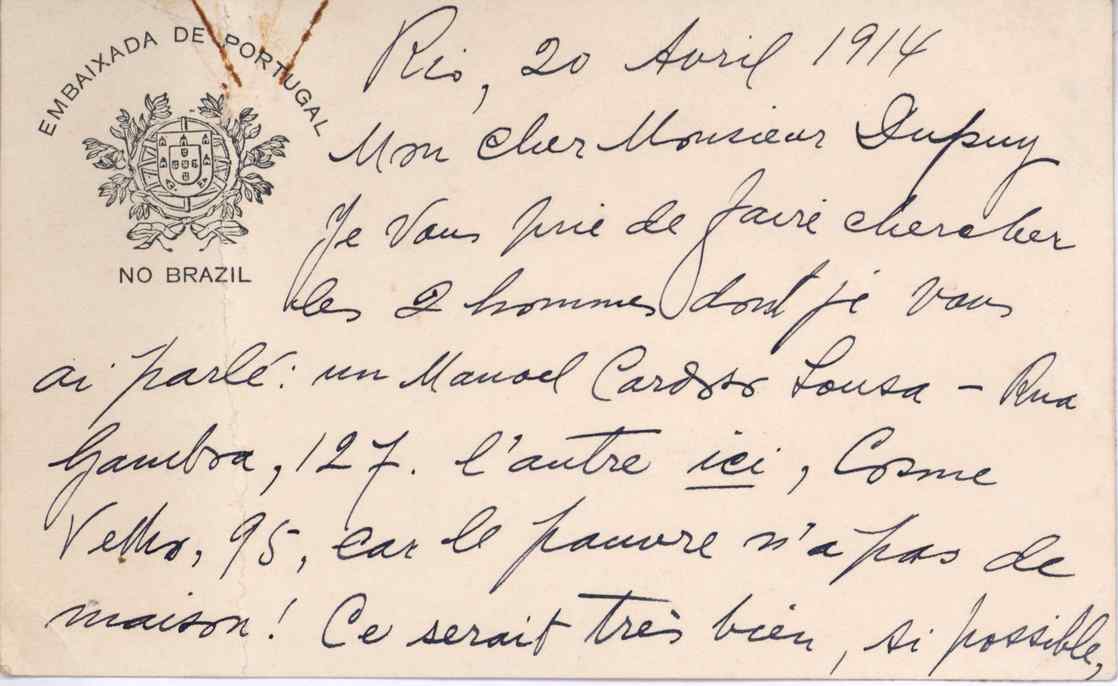 EMBAIXADA DE PORTUGAL
NO BRAZIL
Rio, 20 Avril 1914
Mon cher Monsieur Dupuy
Je vous prie de faire chercher
les 2 hommes dont je vous
ai parlé: un Manoel Cardoso Sousa – Rua
Gamboa, 127. l'autre ici, Cosme
Velho, 95, car le pauvre n'a pas de
maison! Ce serait très bien, si possible,